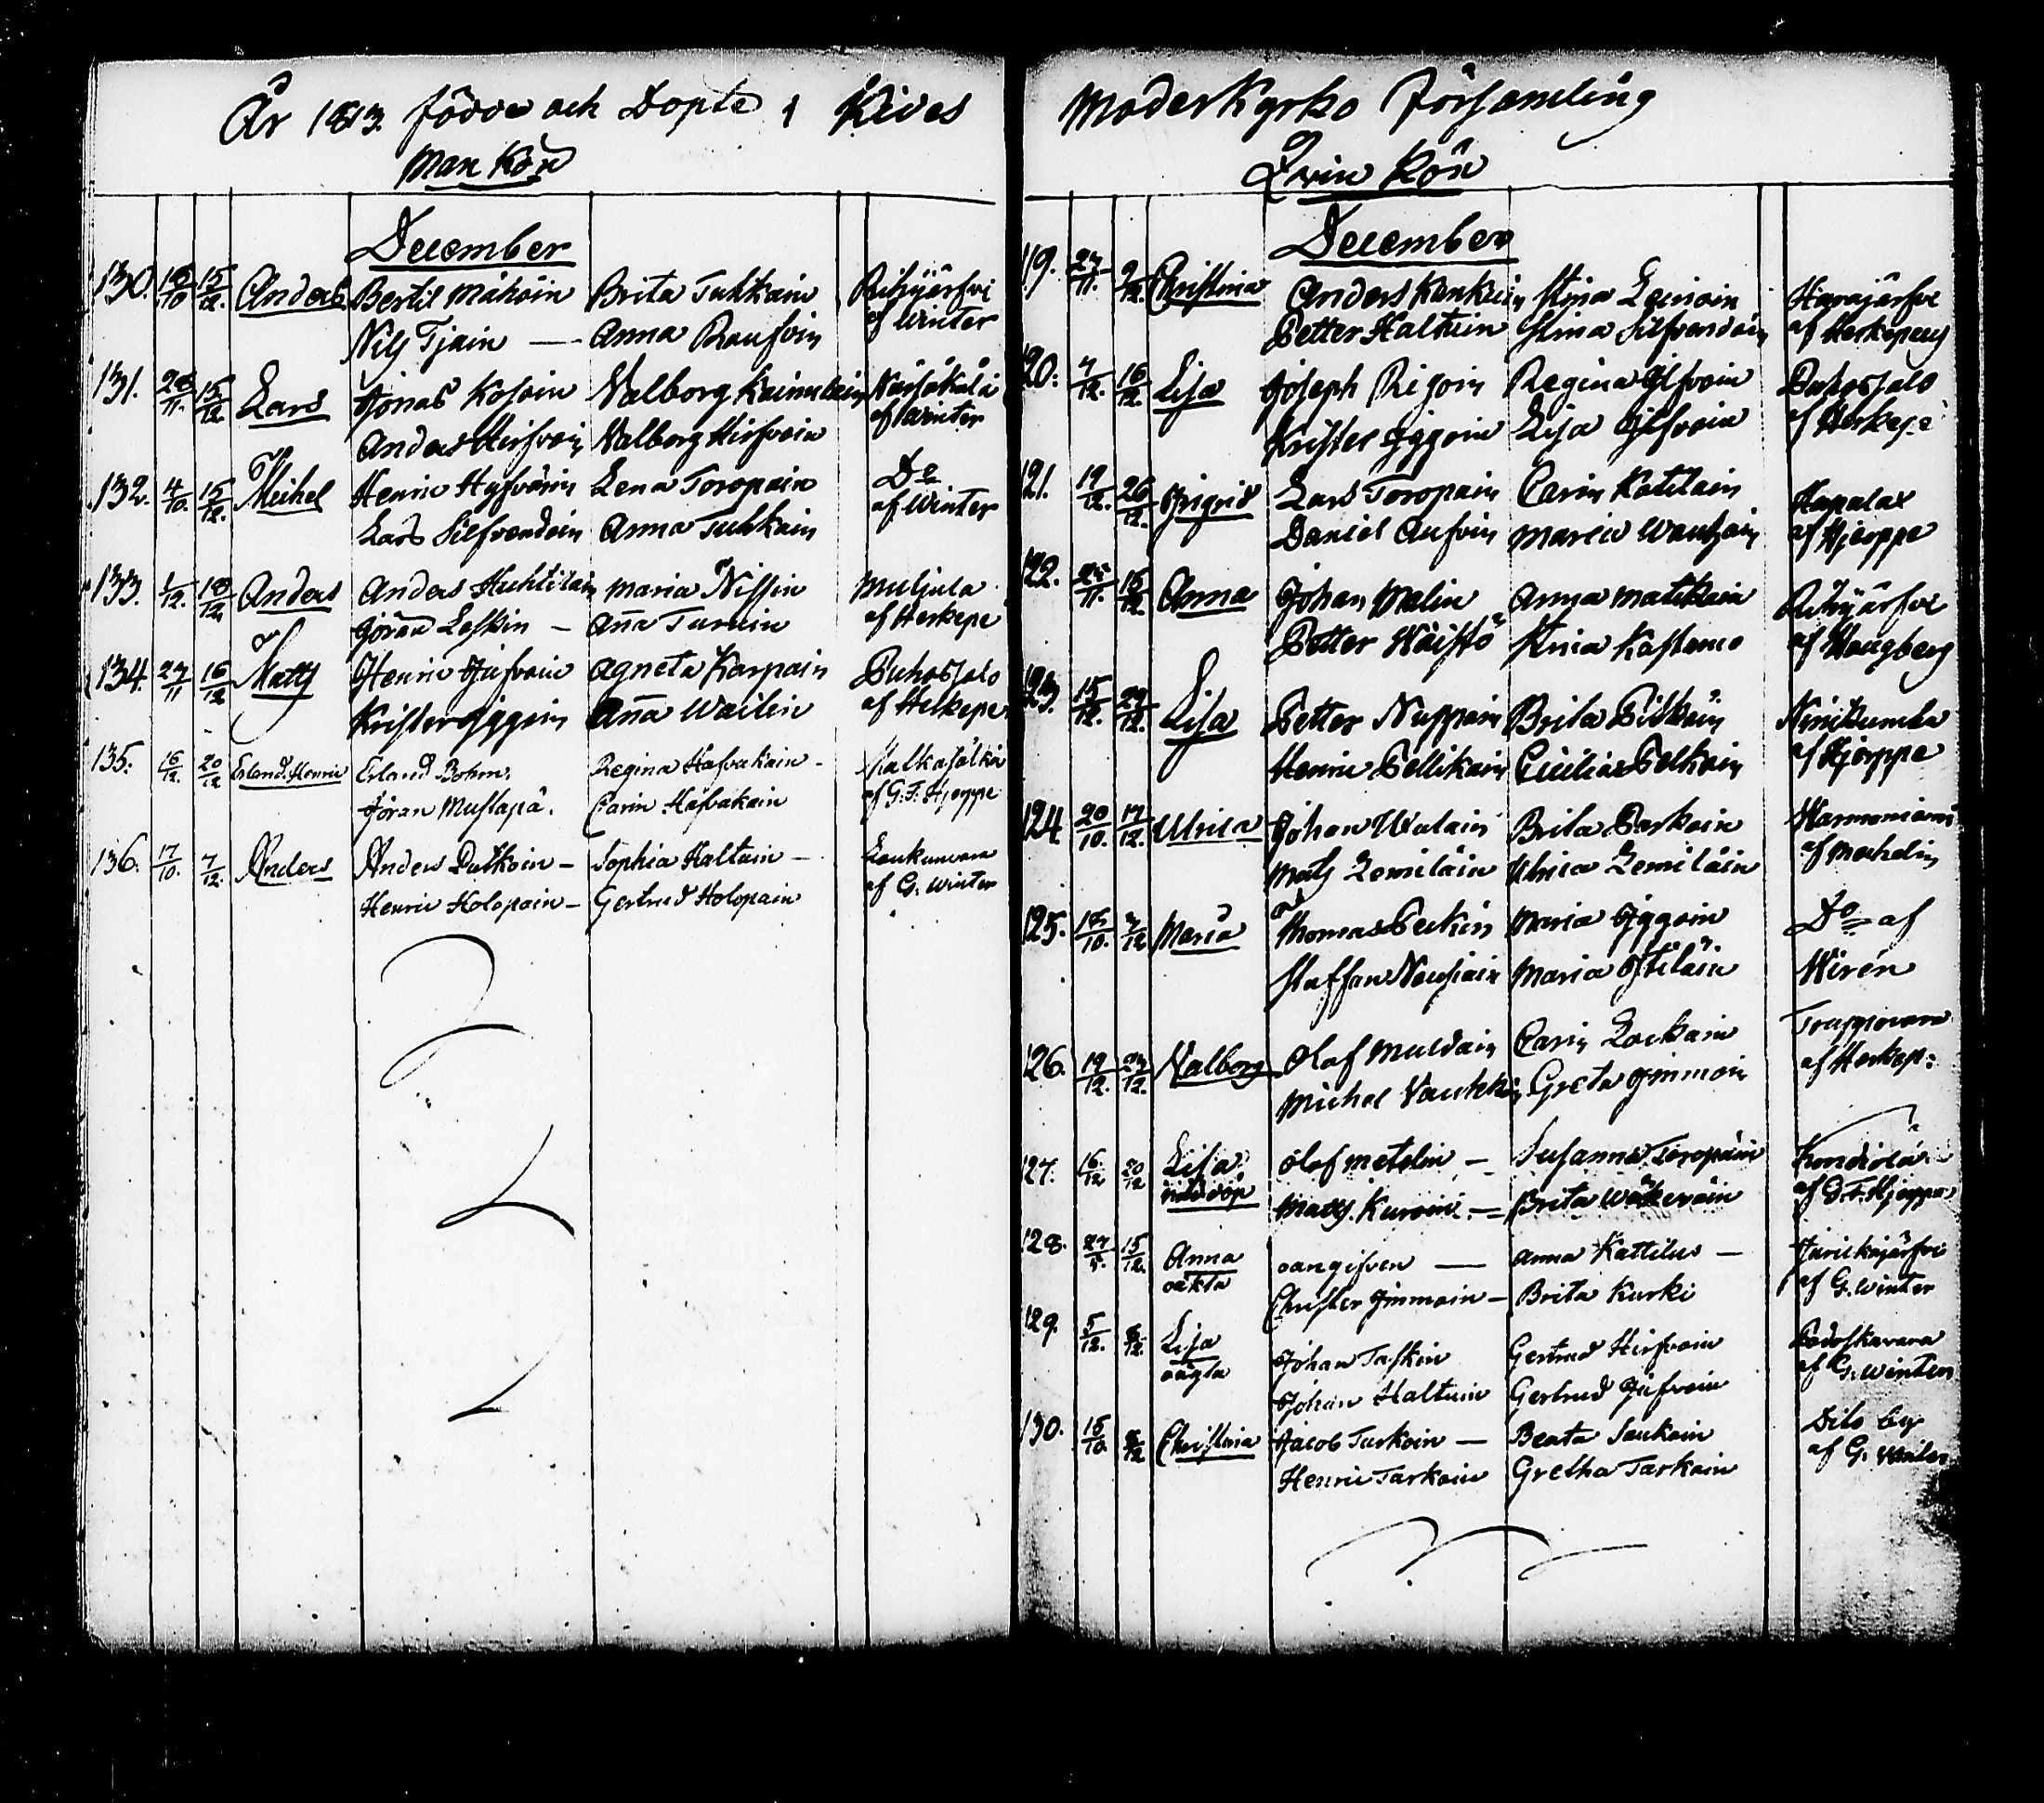 År 1813. födde och Döpte i Kides
Man Kön
December
130. 18/10 15/12. Anders Bertil Måhöin Brita Tuhkain Rihijärfvi
Nils Tjain — Anna Roufvin af Winter
131. 28/11. 15/12 Lars Jonas Kosoin Valborg Kainulain
Anders Hirfvoin Valborg Hirfvoin af Winter
132. 4/10. 15/12. Michel Henric Hyfvärin Lena Toropain Do
Lars Silfvendoin Anna Tuhkain af Winter
133. 1/12. 18/12 Anders Anders Huhtilain Maria Nissin Muljula
Göran Leskin — Aña Turuin af Herkepe
134. 27/11 16/12 Matts Henric Hirfvoin Agneta Karpain Puhossalo
Krister Iggoin Aña Wailin af Helkepe
135. 16/12. 20/12 Erland Henric Erland Bohm. Regina Hafvakain - Malkasälkä
Jöran Mustapä. Carin Hafvakain af G. F. Hjeppe
136. 17/10. 7/12. Anders Anders Putkoin - Sophia Haltuin - Loukunvara
Henric Holopain - Gertrud Holopain af G. Winter
Moderkyrko Församling
Qvin Kön
December
119. 27/11. 2/12. Christina Anders Kankuin Stina Leinoin Harajärfvi
Petter Haltuin Stina Silfvendoin af Herkepeus
120. 7/12. 16/12 Lisa Joseph Rigoin Regina Ilfvoin Puhossalo
Krister Iggoin Lisa Ilfvoin af Herkepe
121. 19/12. 26/12. Sigrid Lars Toropain Carin Katilain Hupalax
Daniel Aufvin Maria af Hjerppe
122. 25/11. 16/12. Anna Johan Malin Anna Matikain Rihijärfvi
Petter Häistö Stina Kastemo af Hougberg
123. 15/12. 29/12. Lisa Petter Nuppoin Brita Pitkäin Niinikumbu
Henric Pellikain Cicilia Pelkoin af Hjerppe
124. 20/10. 17/12. Ulrica Johan Walain Brita Parkoin Harmoniemi
Mats Lemiläin Ulrica Lemiläin af Mechelin
125. 18/10. 7/12 Maria Thomas Peckin Maria Iggoin Do af
Staffan Nousiain Maria Itiläin Wirén
126. 19/12. 27/12. Valborg Olof Muldain Carin Lockain
Michel Vauhkoin Greta Immoin af Herkep:
127. 16/12 20/12 Lisa Olof Metelin — Susanna Toropain Kondiola
nöddöp Matts Kuroin — Brita Wäkeväin af G. F. Hjeppe
128. 27/5. 15/12. Anna oangifven — Anna Kattilus — Juurikajärfvi
oäkta Christer Immoin — Brita Kurki af G. Winter
129. 5/12. 8/12. Lisa Johan Taskin Gertrud Hirfvoin Podoskavara
oägta Johan Haltuin Gertrud Hirfvoin af G. Winter
130. 15/10. 8/12 Christina Jacob Turkoin — Beata Saukoin Dito by
Henric Tarkoin Gretha Tarkoin af G. Winter